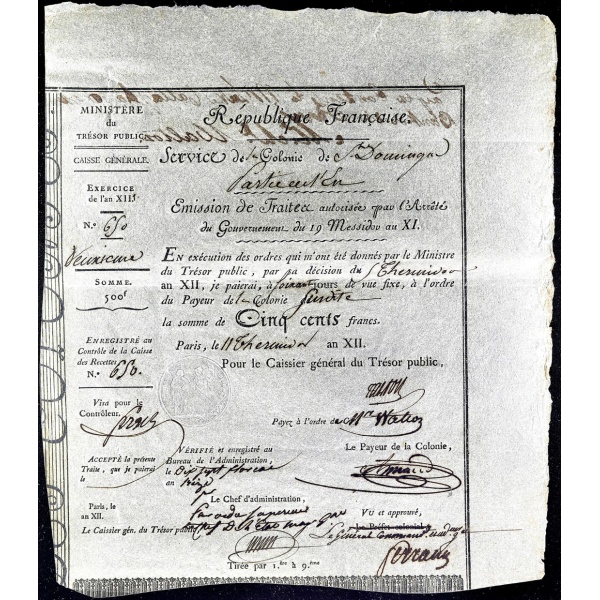 MINISTÈRE
du
TRÉSOR PUBLIC
CAISSE GÉNÉRALE.
EXERCICE
de l'an XII
N.º 650
SOMME.
500f
ENREGISTRÉ au
Contrôle de la Caisse
des Recettes.
N.º 650.
Visa pour le
Contrôleur.
ACCEPTÉ la présente
Traite, que je paierai
le
Paris, le
an XII.
Le Caissier gén. du Trésor public
République Française.
Service de la Colonie de St Domingue
Partie de l'En
Emission de Traites autorisée par l'Arrêté
du Gouvernement du 19 Messidor an XI.
EN exécution des ordres qui m'ont été donnés par le Ministre
du Trésor public, par sa décision du 5 Thermidor
an XII, je paierai, à soixante jours de vue fixe, à l'ordre
du Payeur de la Colonie Susdite
la somme de Cinq cents francs.
Paris, le 11 Thermidor an XII.
Pour le Caissier général du Trésor public,
Payez à l'ordre de
Le Payeur de la Colonie,
VÉRIFIÉ et enregistré au
Bureau de l'Administration,
le dix sept floréal
an treize
Le Chef d'administration,
VU et approuvé,
Le Préfet colonial
Le Général Commandant
Ferrand
Tirée par 1.ère à 9.ème